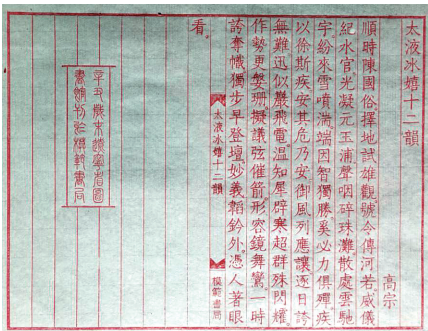 太液冰嬉十二韻
高宗
順時陳國俗擇地試雄觀號令傳河若威儀
紀水官光凝元玉浦聲咽碎珠灘散處雲馳
字紛來雪噴湍端因智獨勝奚必力俱殫疾
以徐斯疾安其危乃安御風列應讓逐日誇
無難迅似巖飛電溫知犀辟寒超群殊閃燿
作勢更媻珊擬議弦催箭形容鏡舞鸞一時
誇奪幟獨步早登壇妙義韜鈐外憑人著眼
看。
太液冰嬉十二韻
模範書局
辛丑歲末遼寧省圖
書館刊於模範書局